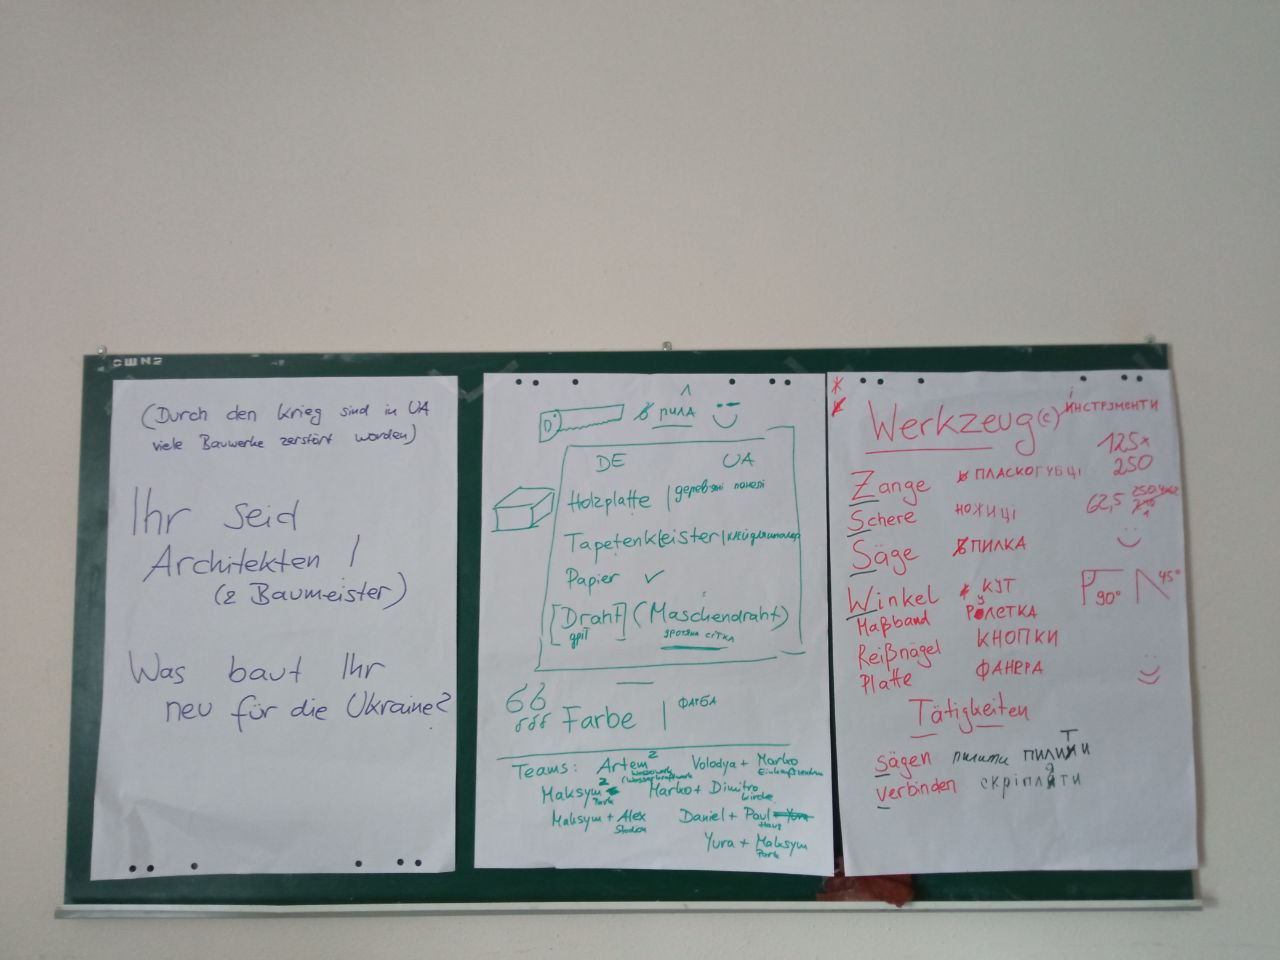 (Durch den Krieg sind in UA
viele Bauwerke zerstört worden)
Ihr seid
Architekten!
(& Baumeister)
Was baut Ihr
neu für die Ukraine?
ПИЛА
DE UA
Holzplatte | дерев'яні панелі
Tapetenkleister | клей для шпалер
Papier ✓
[Draht] (Maschendraht)
дріт зротяна сітка
Farbe | ФАРБА
Teams: Artem 2 Volodya + Marko
Wasserkraftwerk
Maksym 2 Marko + Dimitro
Park Kirche
Maksym + Alex Daniel + Paul
Stadion Haus
Yura + Maksym
Park
Werkzeug(e) ІНСТРУМЕНТИ
125x
250
Zange ПЛАСКОГУБЦІ
Schere НОЖИЦІ 62,5
Säge ПИЛКА
Winkel КУТ 90° 45°
Maßband РУЛЕТКА
Reißnägel КНОПКИ
Platte ФАНЕРА
Tätigkeiten
Sägen пилити ПИЛИТИ
verbinden